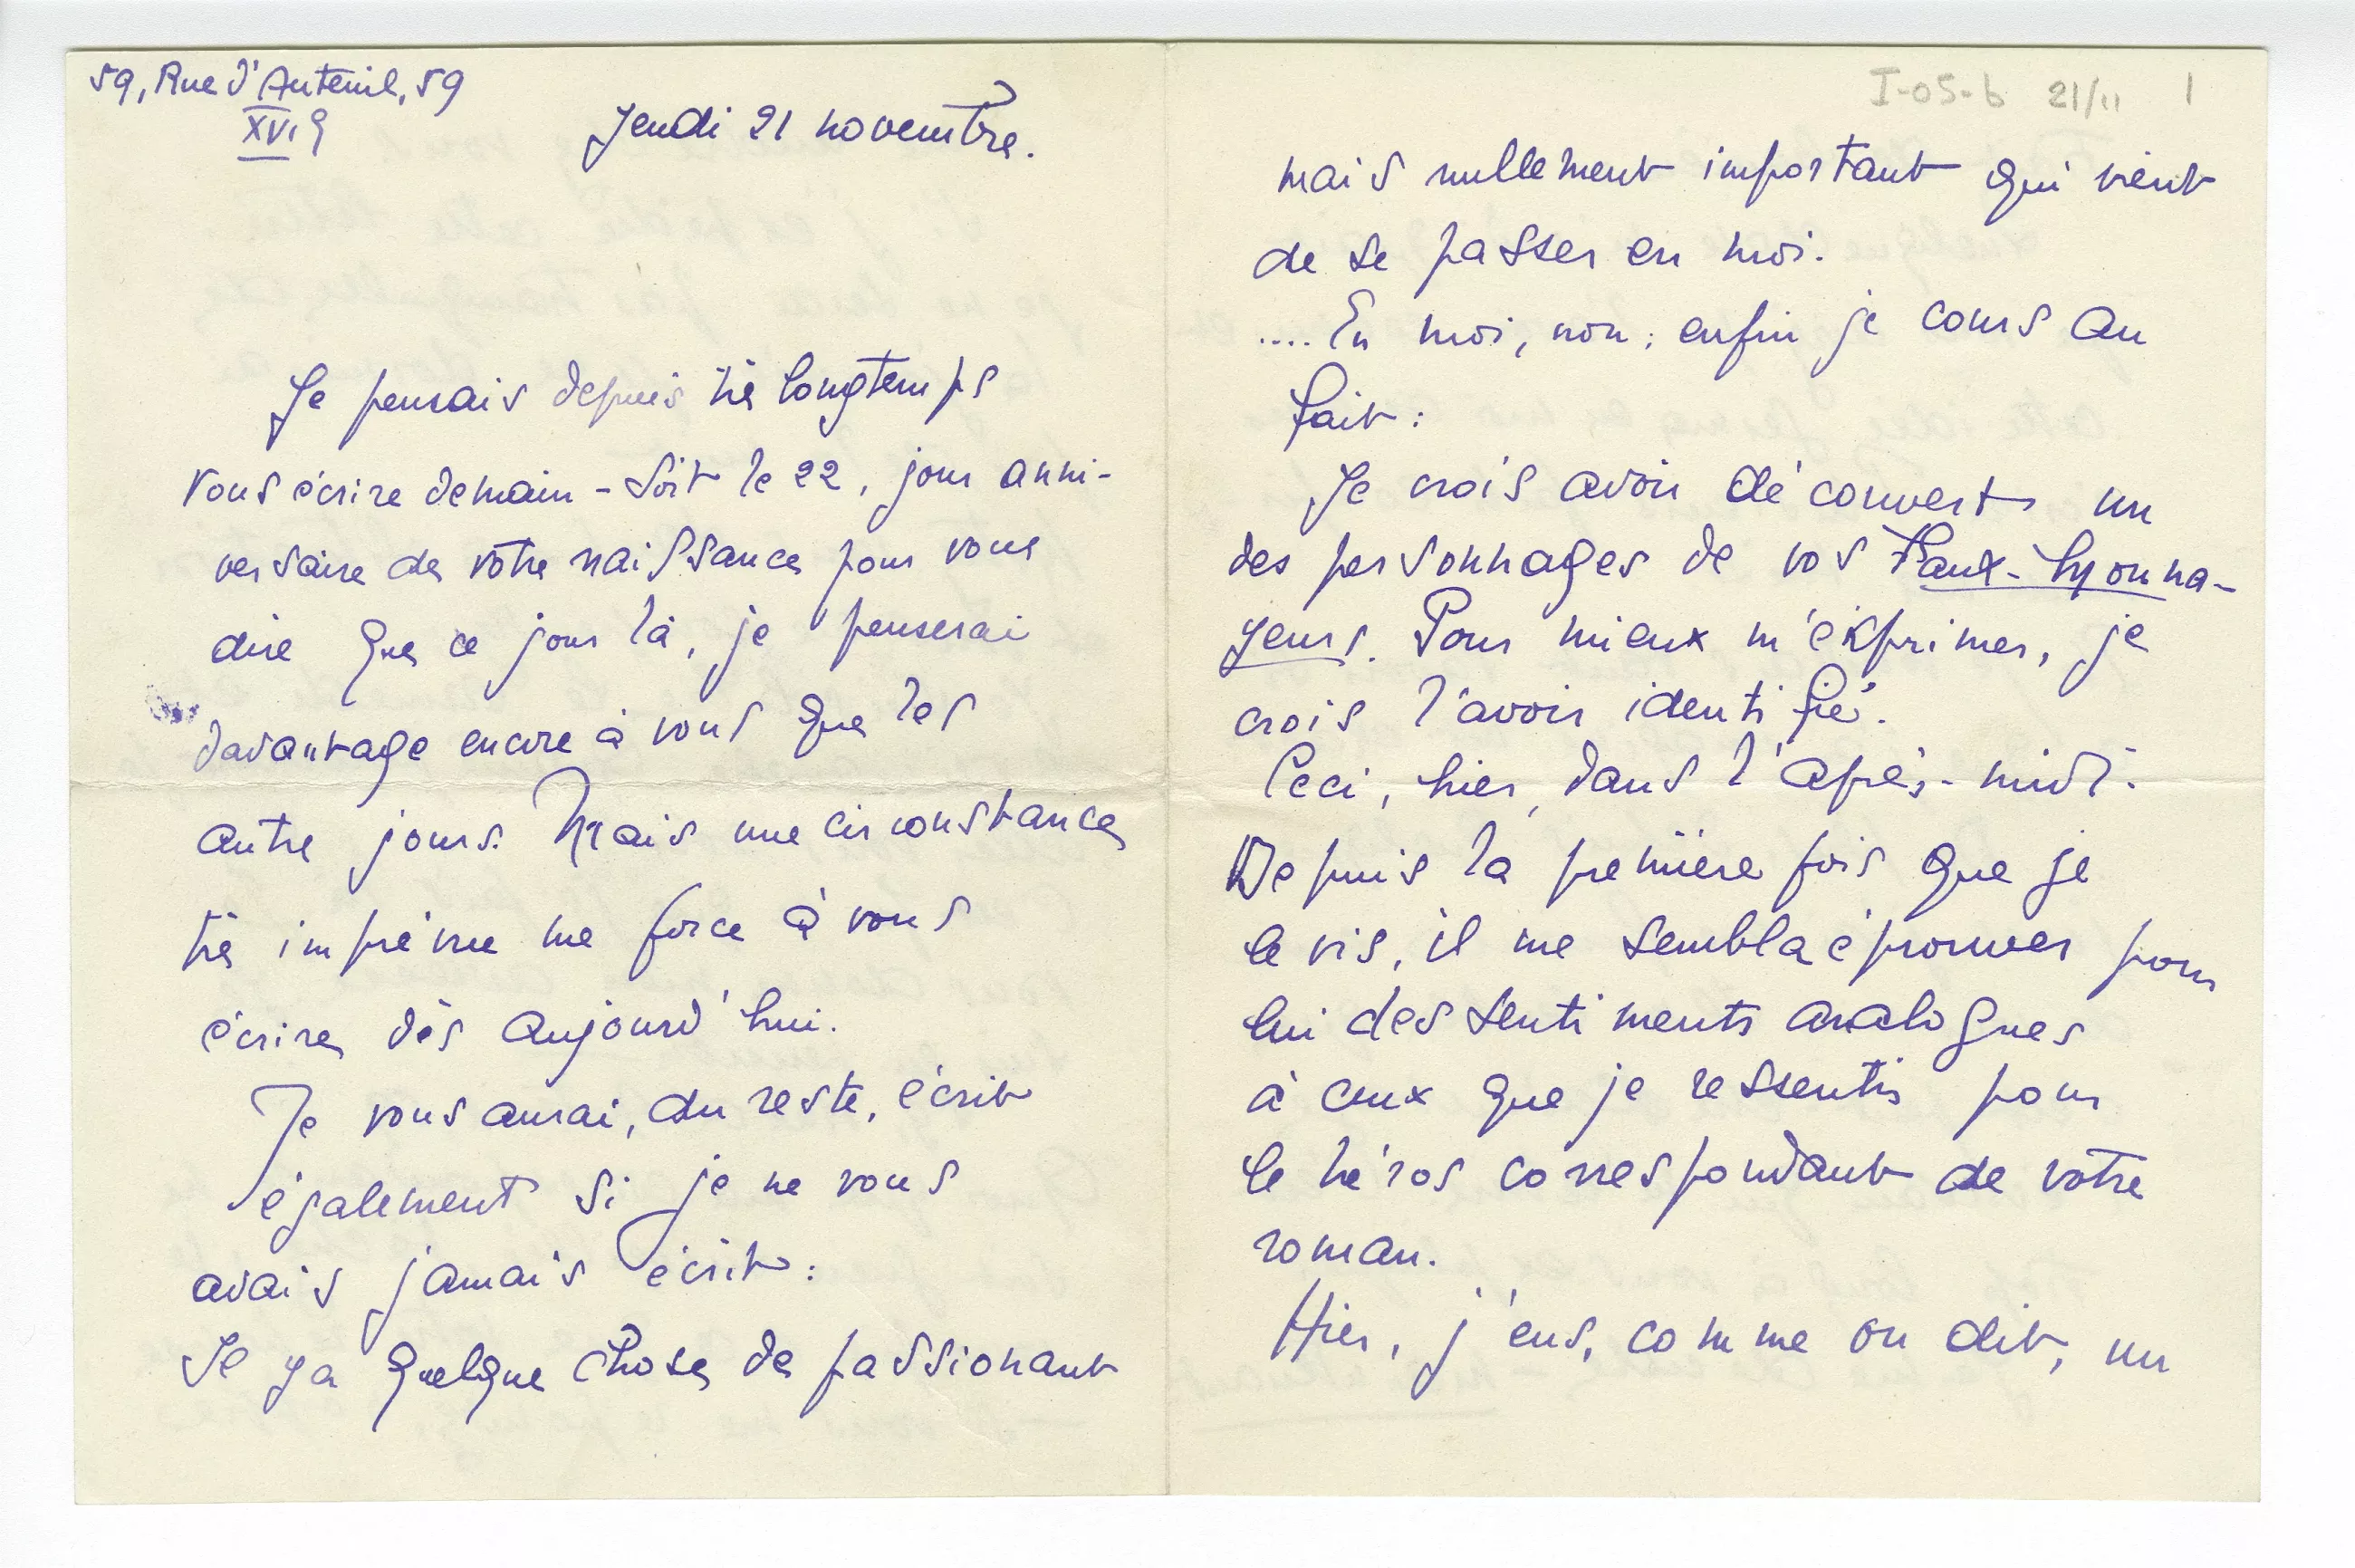 59, Rue d'Auteuil, 59
XVIe
Jeudi 21 novembre.
Je pensais depuis très longtemps
vous écrire demain - soit le 22, jour anni-
versaire de votre naissance pour vous
dire que ce jour là, je penserai
davantage encore à vous que les
autre jours. Mais une circonstance
très imprévue me force à vous
écrire dès aujourd'hui.
Je vous aurai, du reste, écrit
également si je ne vous
avais jamais écrit :
Il y a quelque chose de passionant
I-05-b 21/11 1
mais nullement important qui vient
de se passer en moi.
.... En moi, non ; enfin je cours au
fait :
Je crois avoir découvert un
des personnages de vos Faux-Monna-
yeurs. Pour mieux m'exprimer, je
crois l'avoir identifié.
Ceci, hier, dans l'après-midi.
Depuis la première fois que je
le vis, il me sembla éprouver pour
lui des sentiments analogues
à ceux que je ressentis pour
le héros correspondant de votre
roman.
Hier, j'eus, comme on dit, un